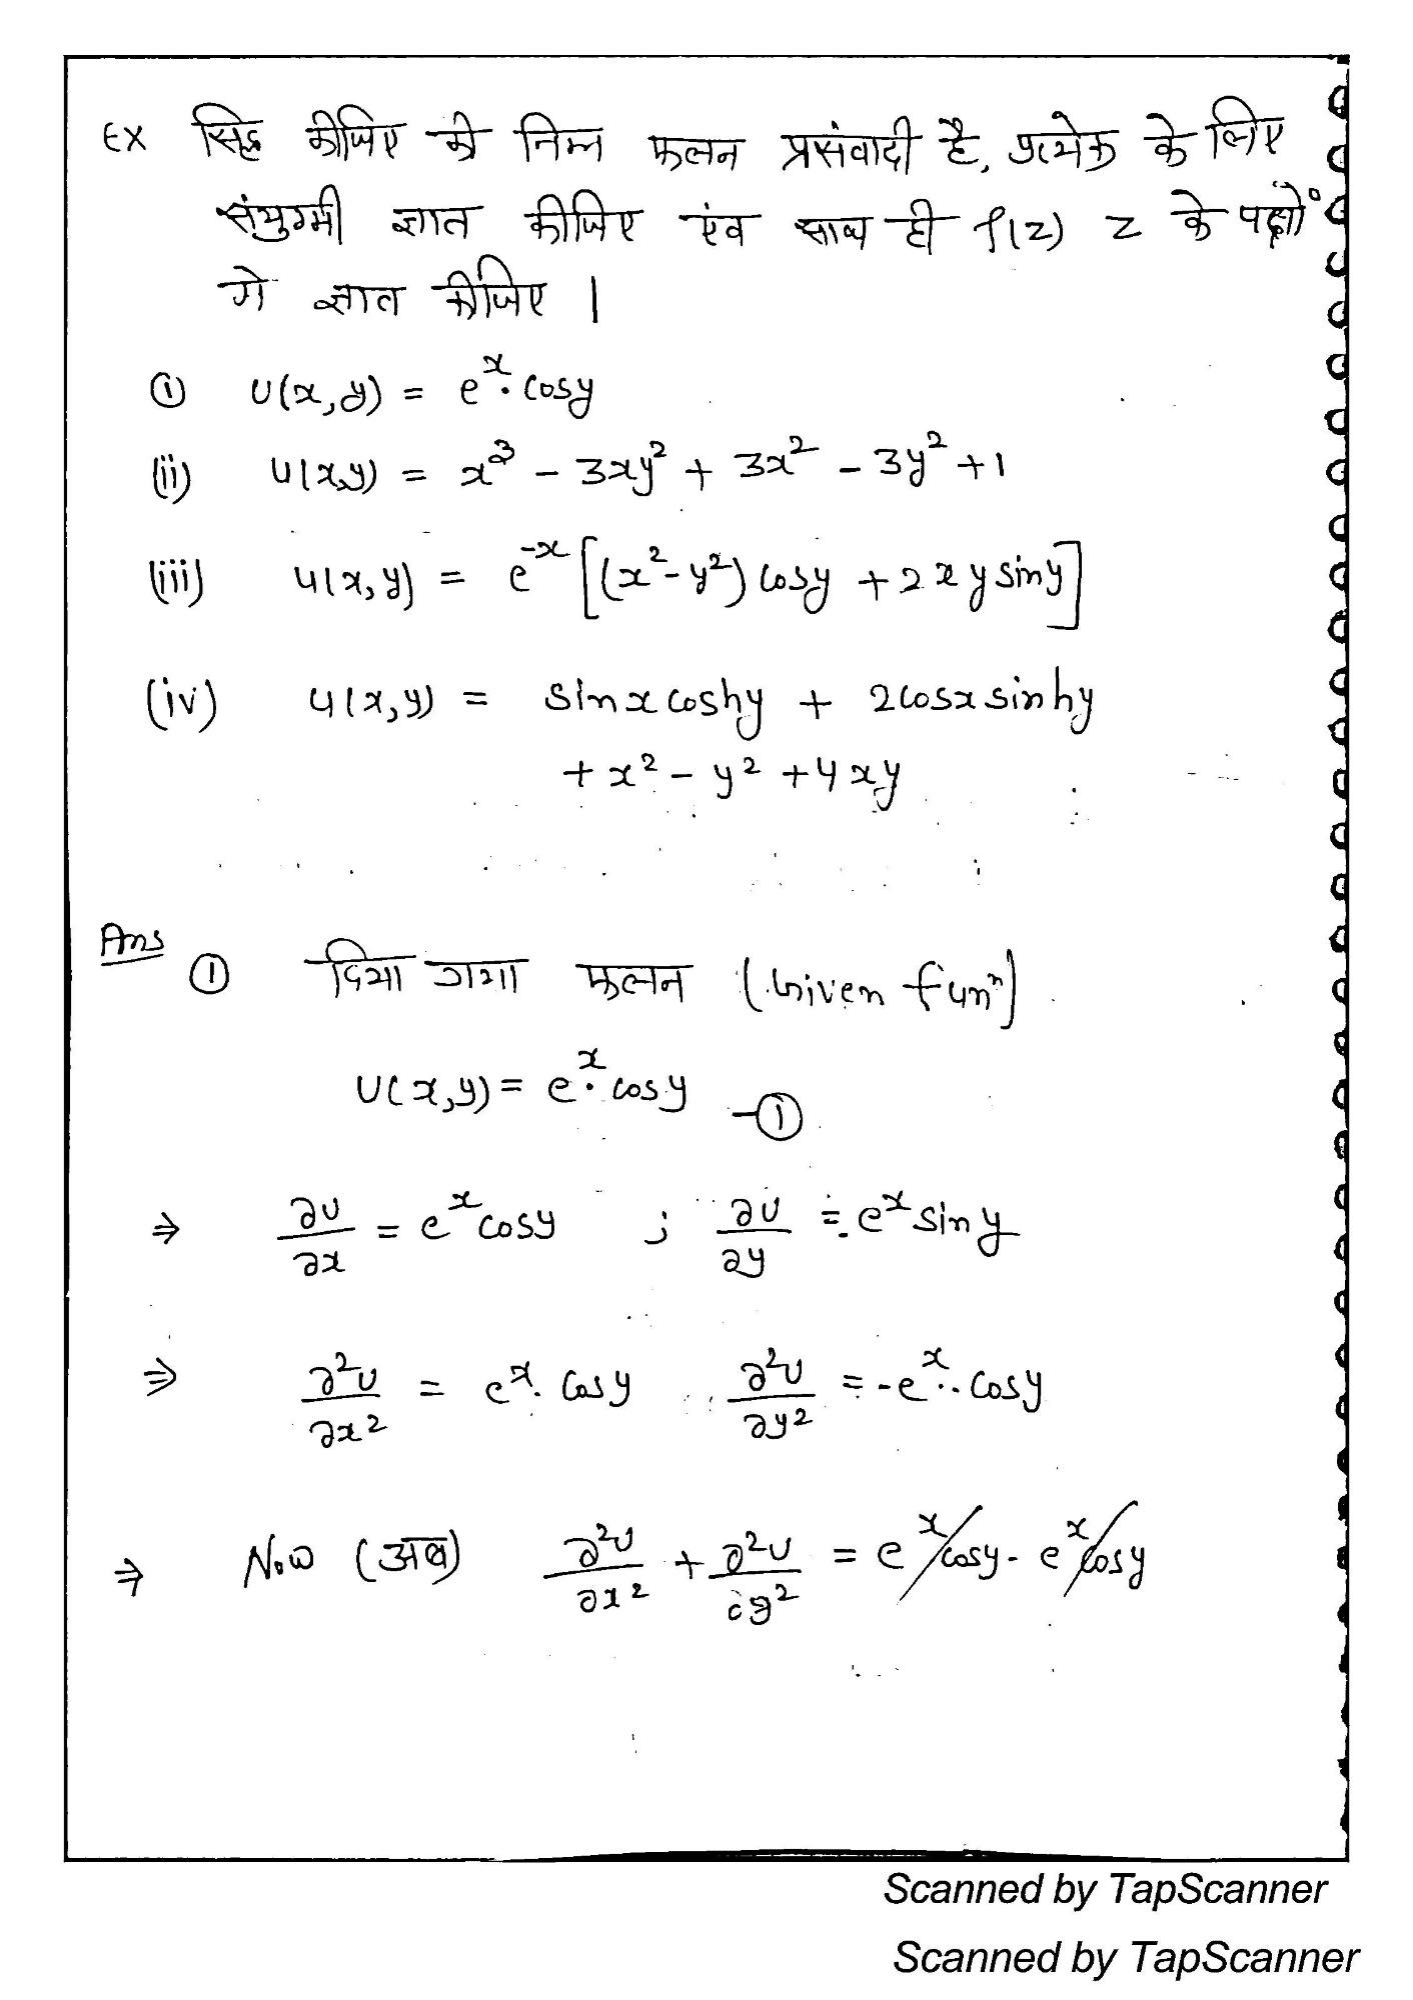 Ex सिद्ध कीजिए की निम्न फलन प्रसंवादी है, प्रत्येक के लिए
संयुग्मी ज्ञात कीजिए एंव साथ ही f(z) z के पक्षों
में ज्ञात कीजिए ।
① U(x,y) = e^x. cosy
(ii) u(x,y) = x^3 - 3xy^2 + 3x^2 - 3y^2 + 1
(iii) u(x,y) = e^-x [(x^2-y^2) cosy + 2xy siny]
(iv) u(x,y) = sinx coshy + 2cosx sinhy
+ x^2 - y^2 + 4xy
Ans ① दिया गया फलन (Given fun^n)
U(x,y) = e^x. cosy -①
⇒ ∂U/∂x = e^x cosy ; ∂U/∂y = - e^x siny
⇒ ∂^2U/∂x^2 = e^x. cosy ∂^2U/∂y^2 = -e^x. cosy
⇒ Now (अब) ∂^2U/∂x^2 + ∂^2U/∂y^2 = e^x cosy - e^x cosy
Scanned by TapScanner
Scanned by TapScanner